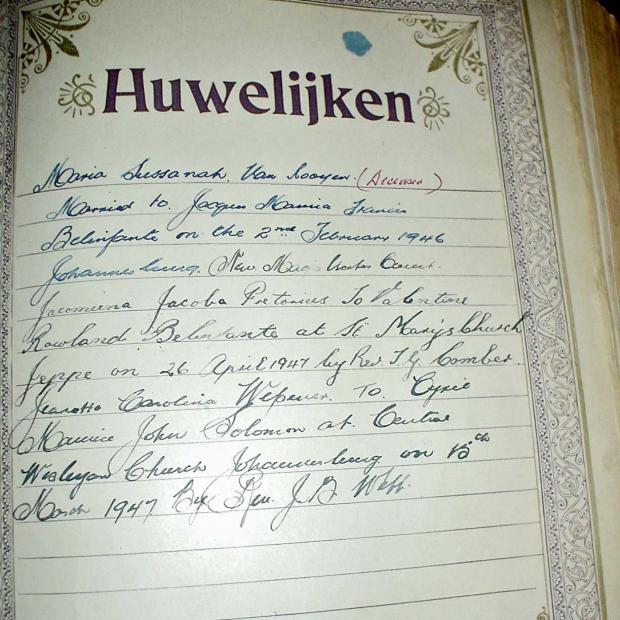 Huwelijken
Maria Sussanah Van Rooyen (Deceased)
Married to Jacques Maurice Francis
Belinfante on the 2nd February 1946
Johannesburg. New Magistrates Court.
Jacomiena Jacoba Pretorius To Valentine
Rowland Belinfante at St Marys Church
Jeppe on 26 April 1947 by Rev. T. G. Comber.
Carolina Wepener. To. Cyril
Maurice John Solomon at. Central
Wesleyan Church Johannesburg on 15th
March 1947 By Rev. J. B. Webb.